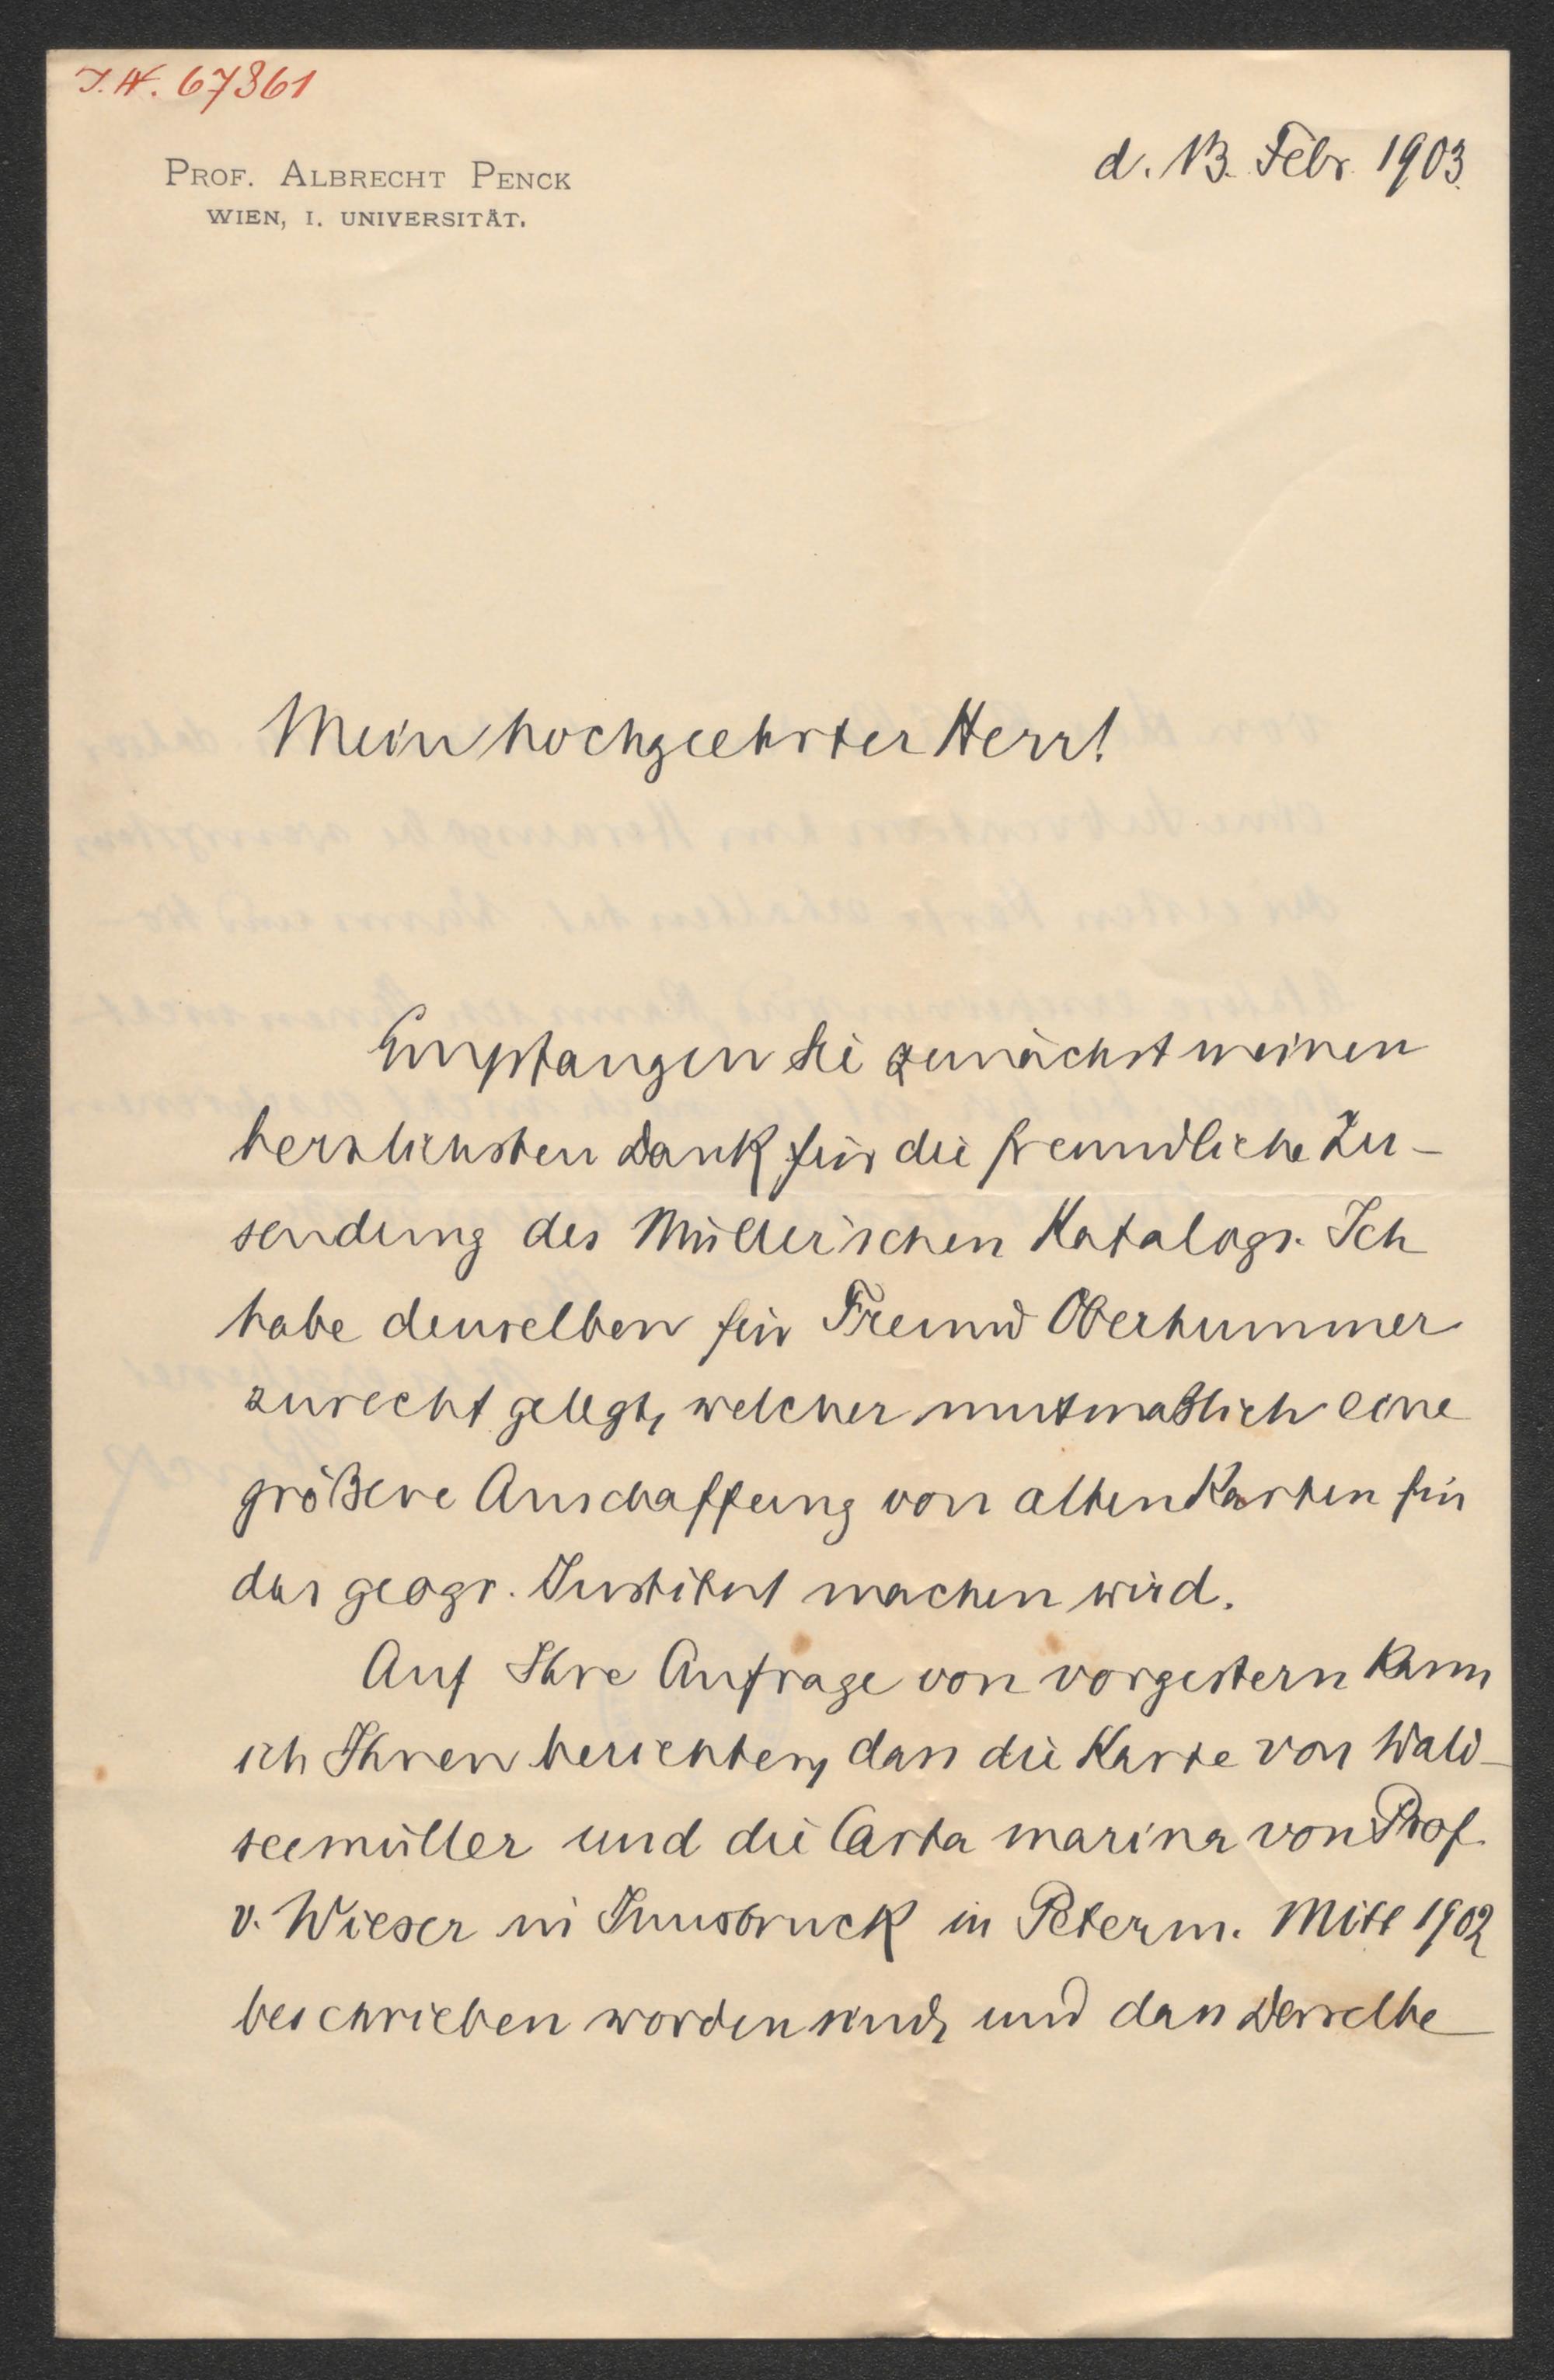 J.N. 67361
PROF. ALBRECHT PENCK
WIEN, I. UNIVERSITÄT.
d. 13. Febr. 1903.
Mein hochgeehrter Herr!
Empfangen Sie zunächst meinen
herzlichsten Dank für die freundliche Zu-
sendung des Müller'schen Katalogs. Ich
habe denselben für Freund Oberhummer
zurecht gelegt, welcher mutmaßlich eine
größere Anschaffung von alten Karten für
das geogr. Institut machen wird.
Auf Ihre Anfrage von vorgestern kann
ich Ihnen berichten, dass die Karte von Wald-
seemüller und die Carta marina von Prof.
v. Wieser in Innsbruck in Peterm. Mitt 1902
beschrieben worden sind, und dass derselbe